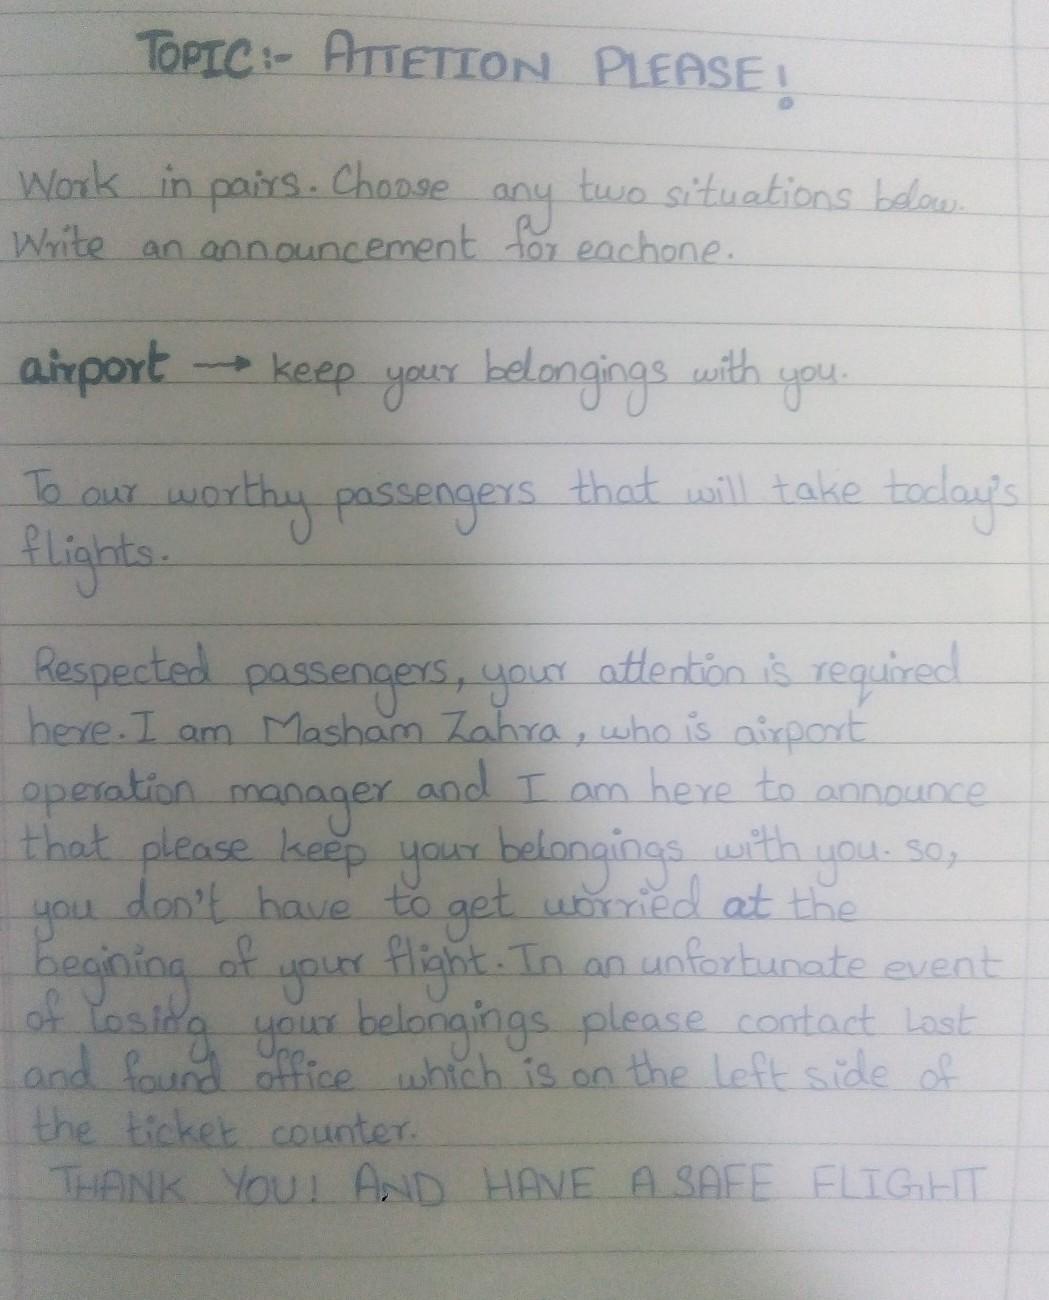 TOPIC:- ATTETION PLEASE!
Work in pairs. Choose any two situations below.
Write an announcement for eachone.
airport → keep your belongings with you.
To our worthy passengers that will take today's
flights.
Respected passengers, your attention is required
here. I am Masham Zahra, who is airport
operation manager and I am here to announce
that please keep your belongings with you. so,
you don't have to get worried at the
begining of your flight. In an unfortunate event
of losing your belongings please contact Lost
and found office which is on the left side of
the ticket counter.
THANK YOU! AND HAVE A SAFE FLIGHT